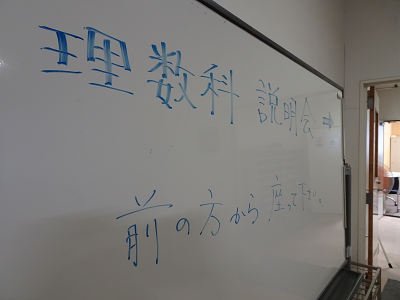 理数科 説明会 ⇒
前の方から座って下さい。